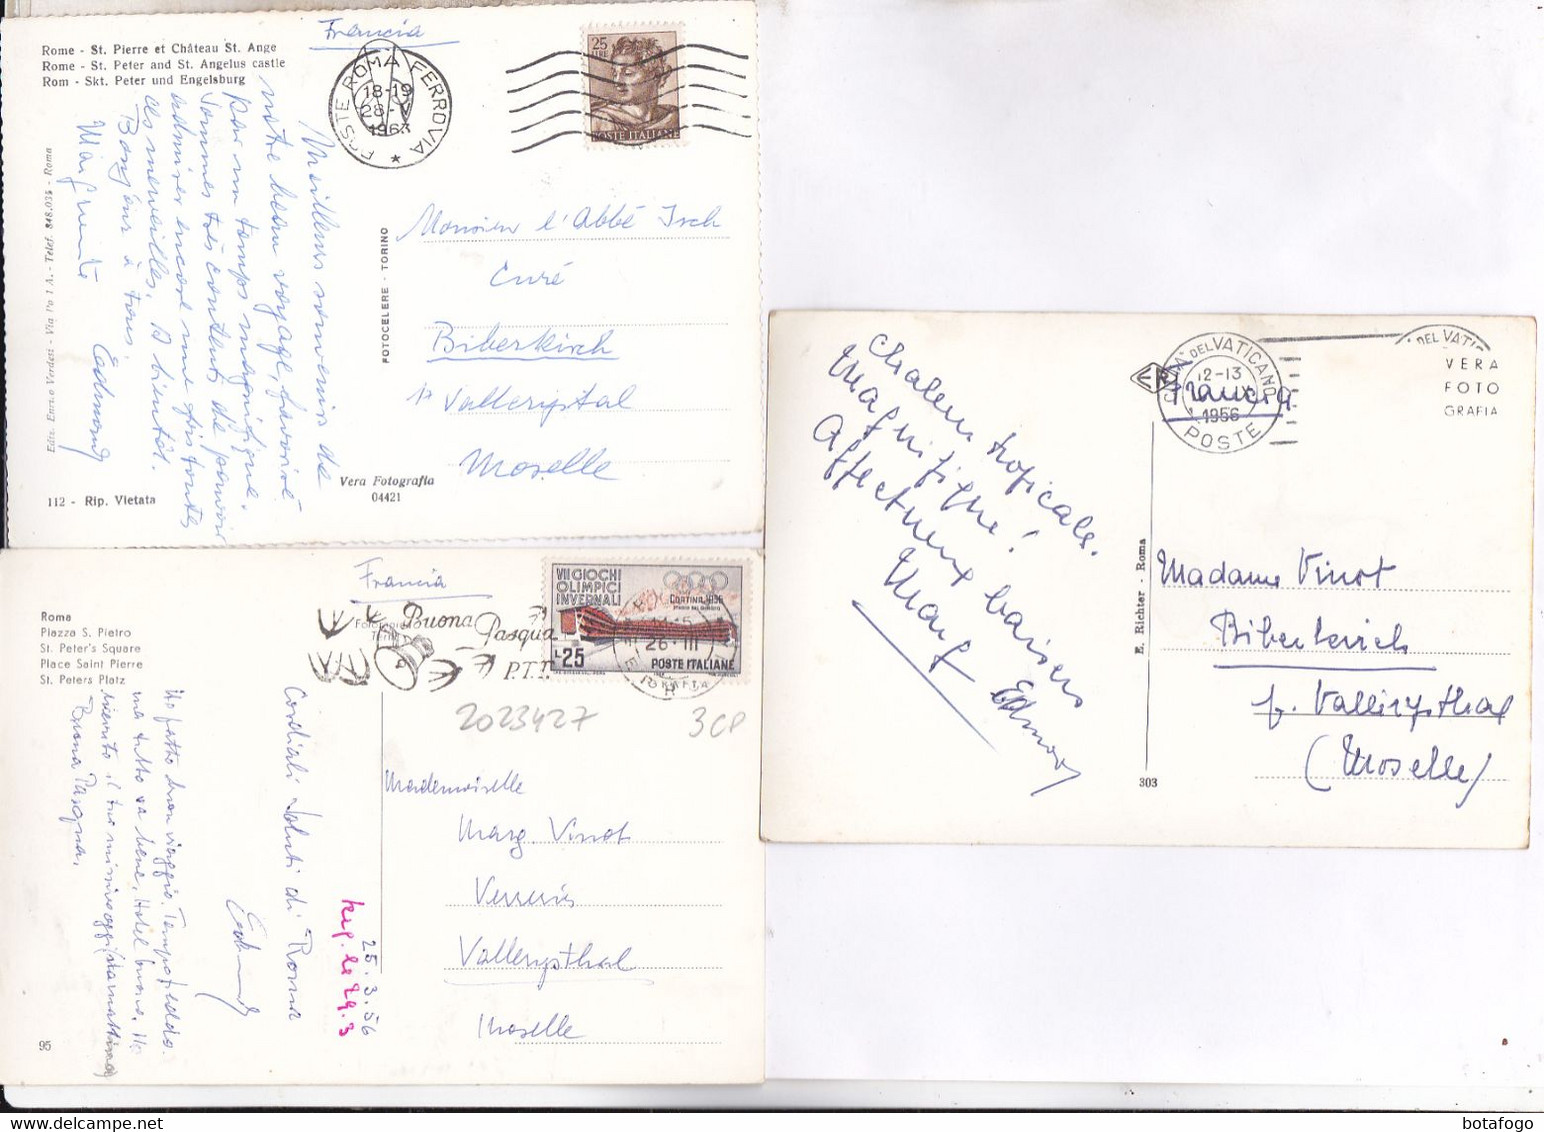 Rome - St. Pierre et Château St. Ange
Rome - St. Peter and St. Angelus castle
Rom - Skt. Peter und Engelsburg
Francia
POSTE ROMA FERROVIA
18-19
28-V
1963
25
LIRE
POSTE ITALIANE
Meilleurs souvenirs de
notre beau voyage, favorisé
par un temps magnifique.
Sommes très contents de pouvoir
admirer encore une fois toutes
ces merveilles. A bientôt.
Bonjour à tous.
Marguerite Edmond
Ediz. Enrico Verdesi - Via Po 1 A. - Telef. 848.038 - Roma
FOTOCELERE - TORINO
Monsieur l'Abbé Isch
Curé
Biberkirch
Vallerystal
Moselle
112 - Rip. Vietata
Vera Fotografia
04421
Roma
Piazza S. Pietro
St. Peter's Square
Place Saint Pierre
St. Peters Platz
Francia
Buona
Pasqua
P.T.T.
VII GIOCHI
OLIMPICI
INVERNALI
CORTINA 1956
L.25
POSTE ITALIANE
26-III
2023427
3CP
Ho fatto buon viaggio. Tempo freddo
ma tutto va bene, Hotel buono. Ho
ricevuto il tuo missivo oggi (stamattina)
Buona Pasqua.
Edmond
Cordiali saluti di Roma
25.3.56
rep. le 29.3
Mademoiselle
Marg. Vinot
Verrerie
Vallerysthal
Moselle
95
CITTA DEL VATICANO
12-13
1956
POSTE
Francia
DEL VATI
VERA
FOTO
GRAFIA
Chaleur tropicale.
Magnifique!
Affectueux baisers
Marg Edmond
E. Richter - Roma
303
Madame Vinot
Biberkirch
p. Vallerysthal
(Moselle)
botafogo